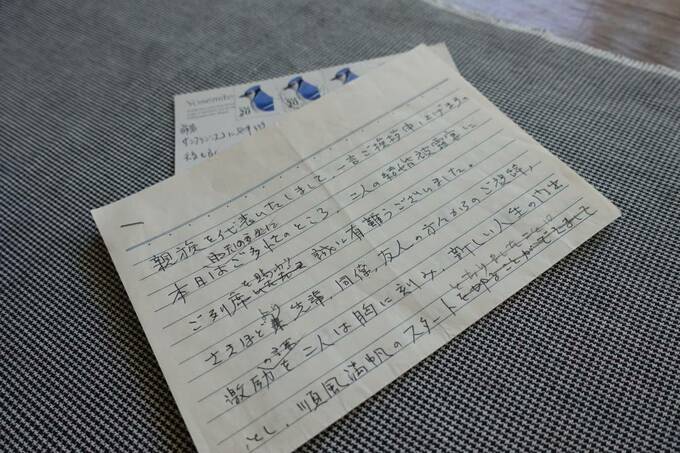 Yosemite
親族を代表いたしまして、一言ご挨拶申し上げます。
本日はご多忙のところ 二人の結婚披露宴に
ご列席を賜り 誠に有難うございました。
さきほどより先輩、同僚、友人の方々からのご祝辞、
激励の語を二人は胸に刻み、新しい人生の門出
とし、順風満帆のスタートを切ることができまして